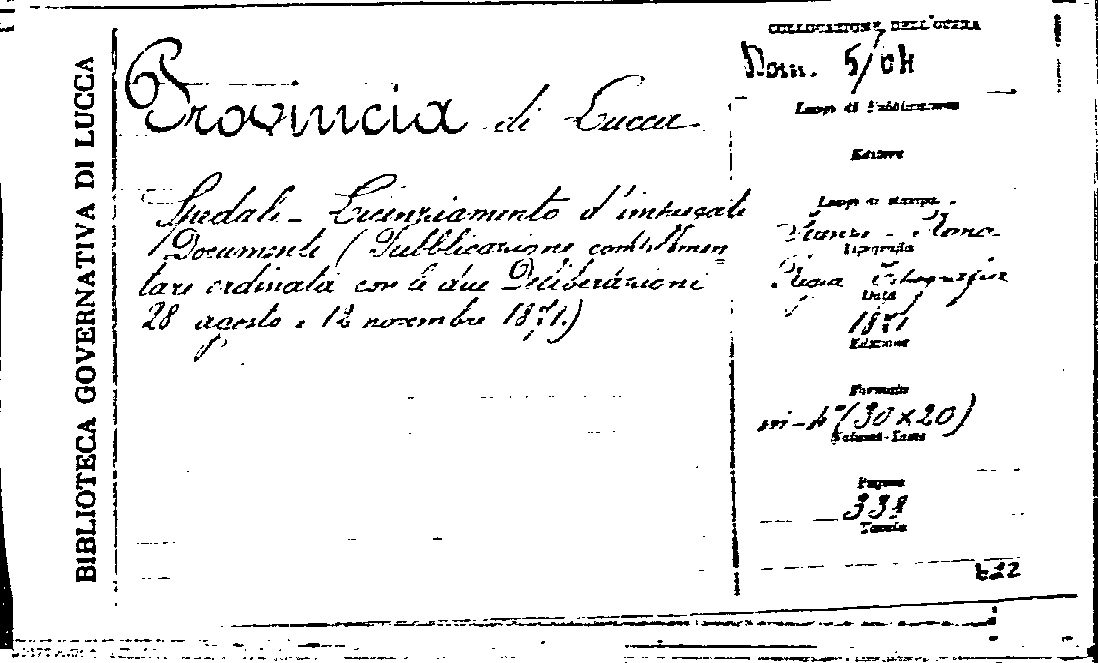 BIBLIOTECA GOVERNATIVA DI LUCCA
Provincia di Lucca
Spedali - Licenziamento d'impiegati
Documenti (Pubblicazione
tare ordinata con le due Deliberazioni
28 agosto e 12 novembre 1871.)
COLLOCAZIONE DELL'OPERA
5/04
Luogo di Pubblicazione
Editore
Luogo di stampa
Firenze - Roma
Tipografia
Regia Tipografia
Data
1871
Edizione
Formato
in-4° (30 x 20)
Volumi-Tomi
Pagine
338
Tavole